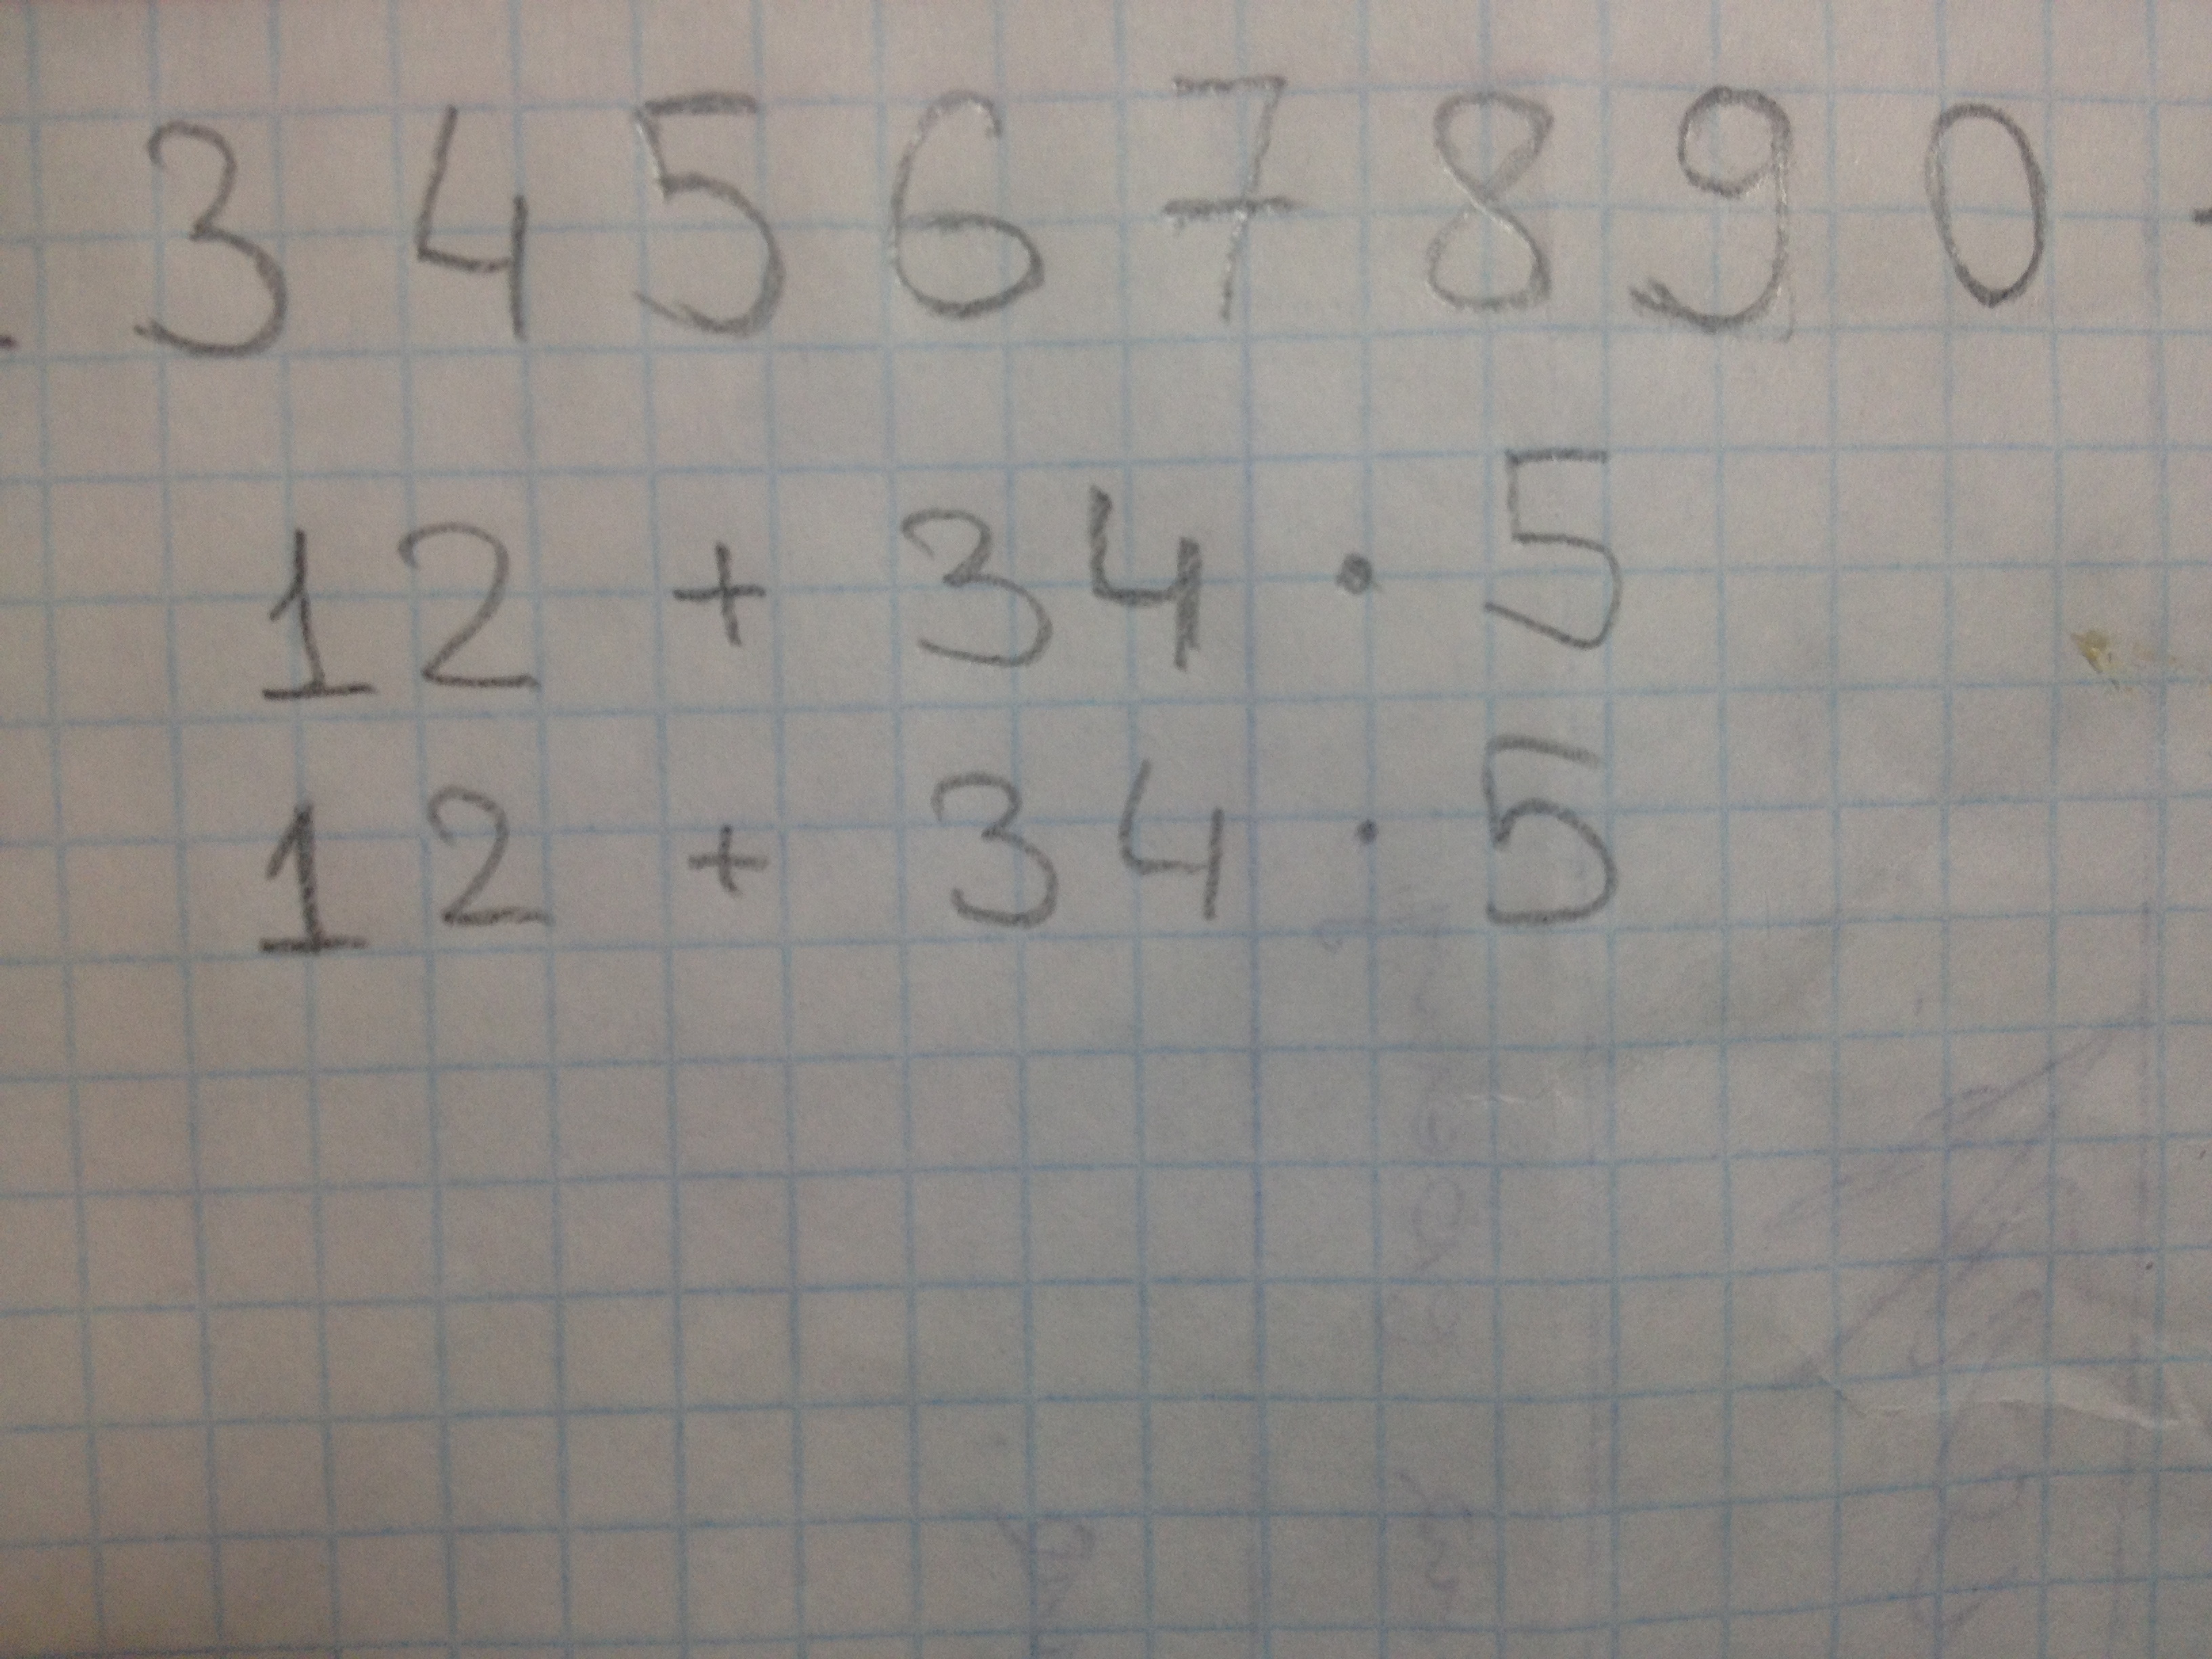 3 4 5 6 7 8 9 0
12 + 34 · 5
12 + 34 · 5